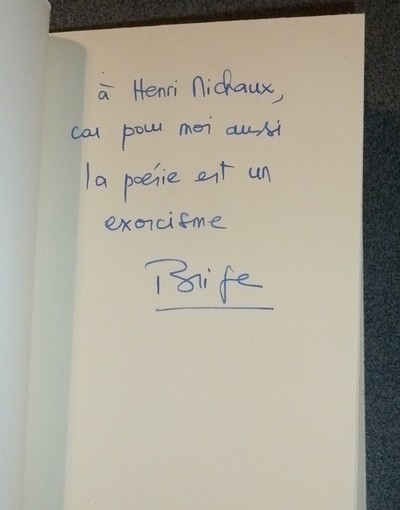 à Henri Michaux,
car pour moi aussi
la poésie est un
exorcisme